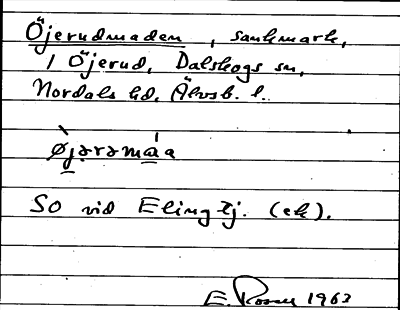 Öjerudmaden, sankmark,
i Öjerud, Dalskogs sn,
Nordals hd, Älvsb. l.
øjərəmàa
SO vid Elingtj. (ek).
E. Rosell 1963